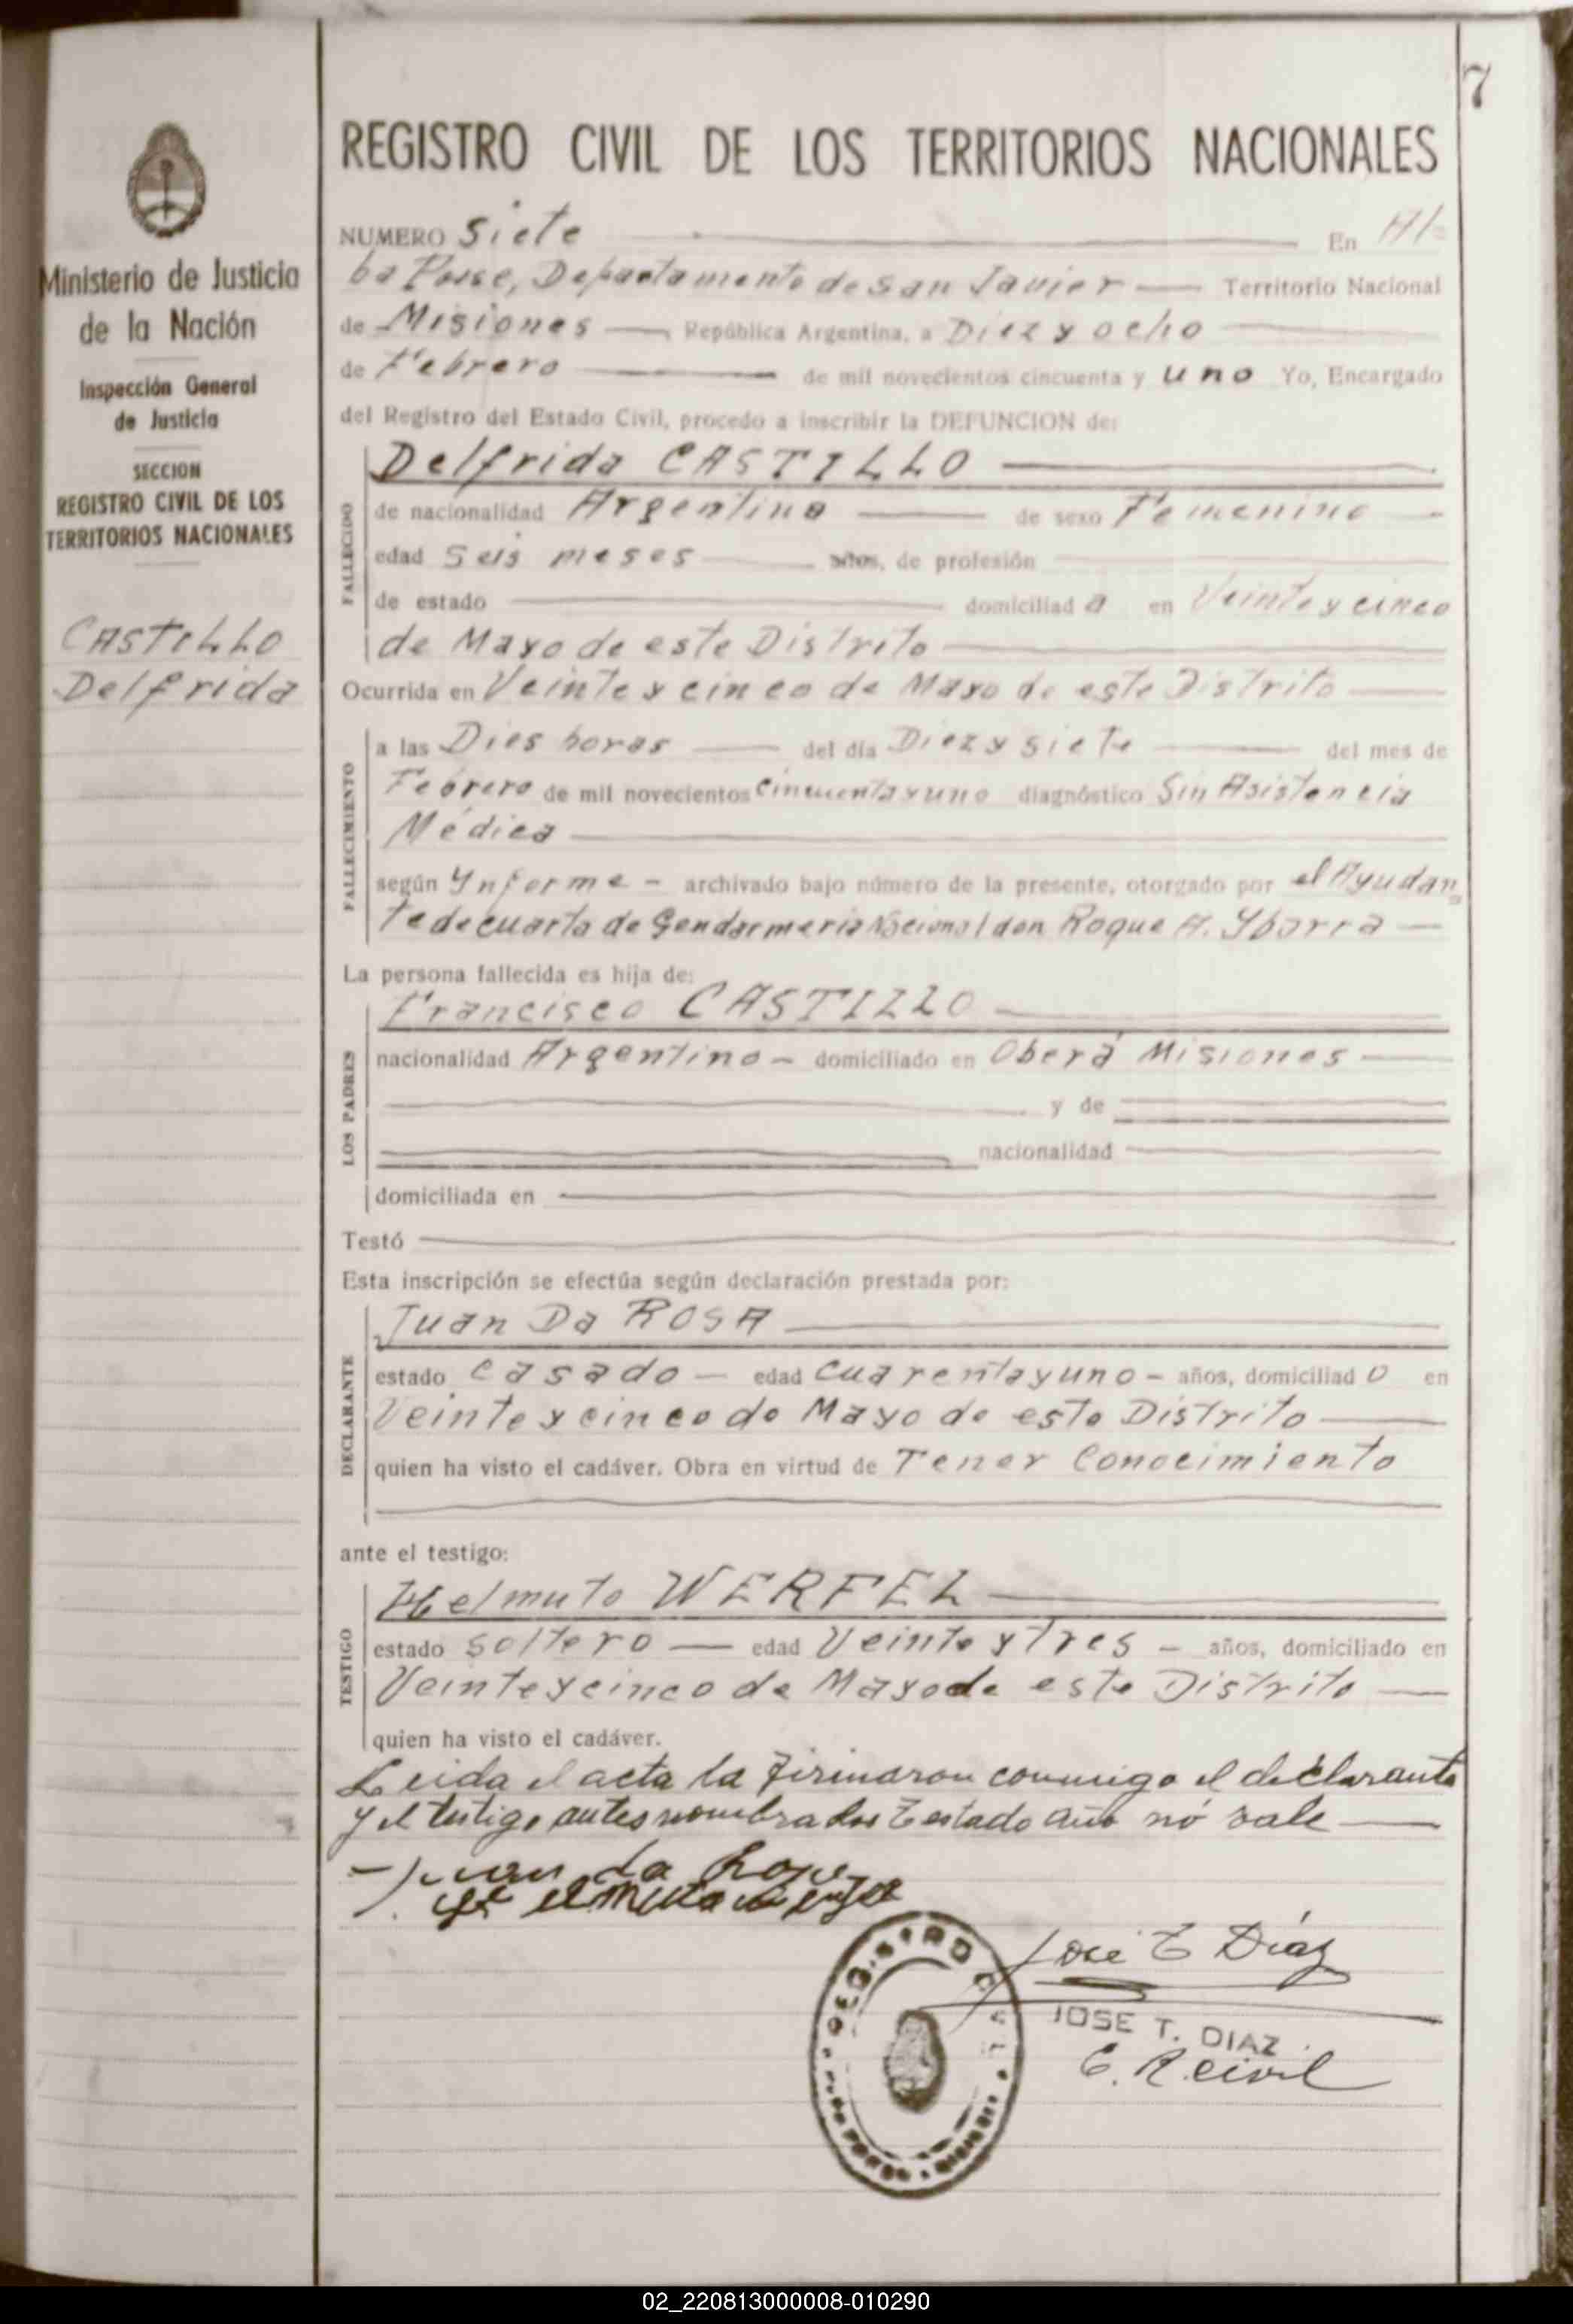 7
REGISTRO CIVIL DE LOS TERRITORIOS NACIONALES
Ministerio de Justicia
de la Nación
Inspección General
de Justicia
SECCION
REGISTRO CIVIL DE LOS
TERRITORIOS NACIONALES
CASTILLO
Delfrida
NUMERO Siete En Al-
ba Posse, Departamento de San Javier Territorio Nacional
de Misiones República Argentina, a Diez y ocho
de Febrero de mil novecientos cincuenta y uno Yo, Encargado
del Registro del Estado Civil, procedo a inscribir la DEFUNCION de:
FALLECIDO
Delfrida CASTILLO
de nacionalidad Argentina de sexo Femenino
edad Seis meses años, de profesión
de estado domiciliad a en Veinte y cinco
de Mayo de este Distrito
Ocurrida en Veinte y cinco de Mayo de este Distrito
FALLECIMIENTO
a las Dies horas del día Diez y siete del mes de
Febrero de mil novecientos cincuenta y uno diagnóstico Sin Asistencia
Médica
según Ynforme - archivado bajo número de la presente, otorgado por el Ayudan
te de cuarta de Gendarmeria Nacional don Roque A. Ybarra
La persona fallecida es hija de:
LOS PADRES
Francisco CASTILLO
nacionalidad Argentino - domiciliado en Oberá Misiones
y de
nacionalidad
domiciliada en
Testó
Esta inscripción se efectúa según declaración prestada por:
DECLARANTE
Juan Da ROSA
estado casado - edad cuarenta y uno - años, domiciliad o en
Veinte y cinco de Mayo de este Distrito
quien ha visto el cadáver. Obra en virtud de Tener Conocimiento
ante el testigo:
TESTIGO
Helmuto WERFEL
estado soltero edad Veinte y Tres - años, domiciliado en
Veinte y cinco de Mayo de este Distrito
quien ha visto el cadáver.
Leida el acta la firmaron conmigo el declarante
y el testigo antes nombrados Testado año nó vale
Juan da Rosa
REGISTRO
José T Díaz
JOSE T. DIAZ
E. R. civil
02_220813000008-010290